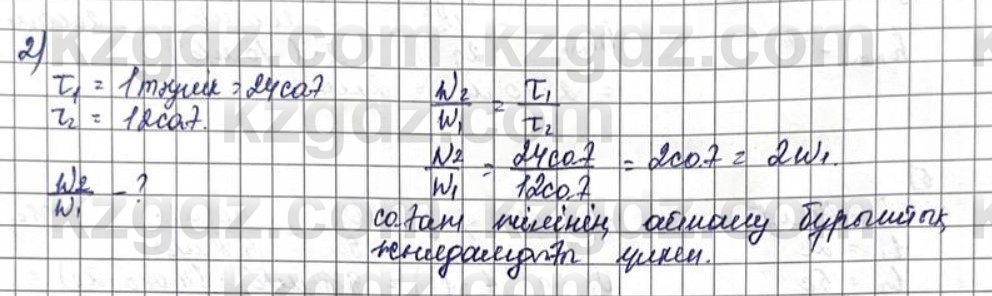 2)
τ₁ = 1 тәулік = 24 сағ
τ₂ = 12 сағ.
W₂/W₁ - ?
W₂/W₁ = τ₁/τ₂
W₂/W₁ = 24 сағ/12 сағ = 2 сағ = 2W₁.
сағат тілінің айналу бұрыштық
жылдамдығы үлкен.
kzgdz.com kzgdz.com kzgdz.com
kzgdz.com